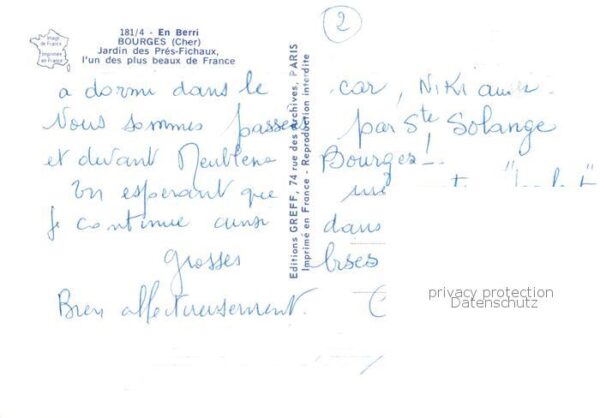 2
Image de France
Imprimée en France
181/4 - En Berri
BOURGES (Cher)
Jardin des Prés-Fichaux,
l'un des plus beaux de France
Editions GREFF, 74 rue des Archives, PARIS
Imprimé en France - Reproduction interdite
a dormi dans le car, NiKi aussi.
Nous sommes passés par Ste Solange
et devant Bourges!..
En espérant que
je continue ainsi dans
grosses bises
Bien affectueusement.
privacy protection
Datenschutz